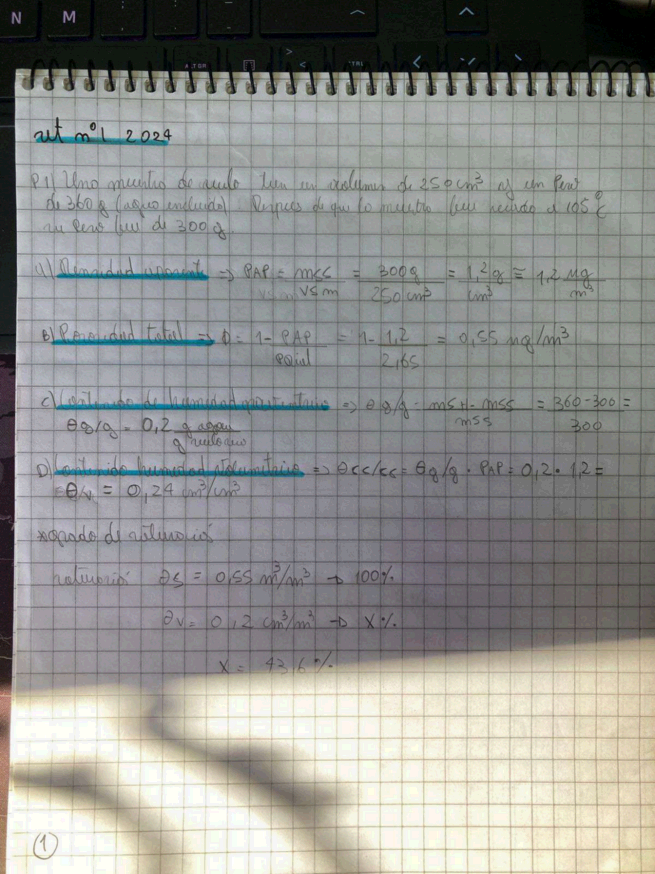 N M
ALT GR
CTRL
> <
ut n°1 2024
P1) Una muestra de suelo tiene un volumen de 250 cm³ y un Peso
de 360 g (agua incluido). Despues de que la muestra fue secada a 105°C
su Peso fue de 300 g.
a) Densidad aparente ⇒ PAP = mss / vsm = 300g / 250 cm³ = 1,2 g / cm³ = 1,2 Mg / m³
B) Porosidad total → = 1 - PAP / PReal = 1 - 1,2 / 2,65 = 0,55 mg/m³
C) Contenido de humedad gravimetrico ⇒ θ g/g = msh - mss / mss = 360-300 / 300 =
θg/g = 0,2 g agua / g suelo seco
D) Contenido humedad volumetrico ⇒ θcc/cc = θg/g · PAP = 0,2 · 1,2 =
θv = 0,24 cm³/cm³
grado de saturacion
saturacion: θs = 0,55 m³/m³ → 100%
θv = 0,2 cm³/m³ → X%
X = 43,6%
1